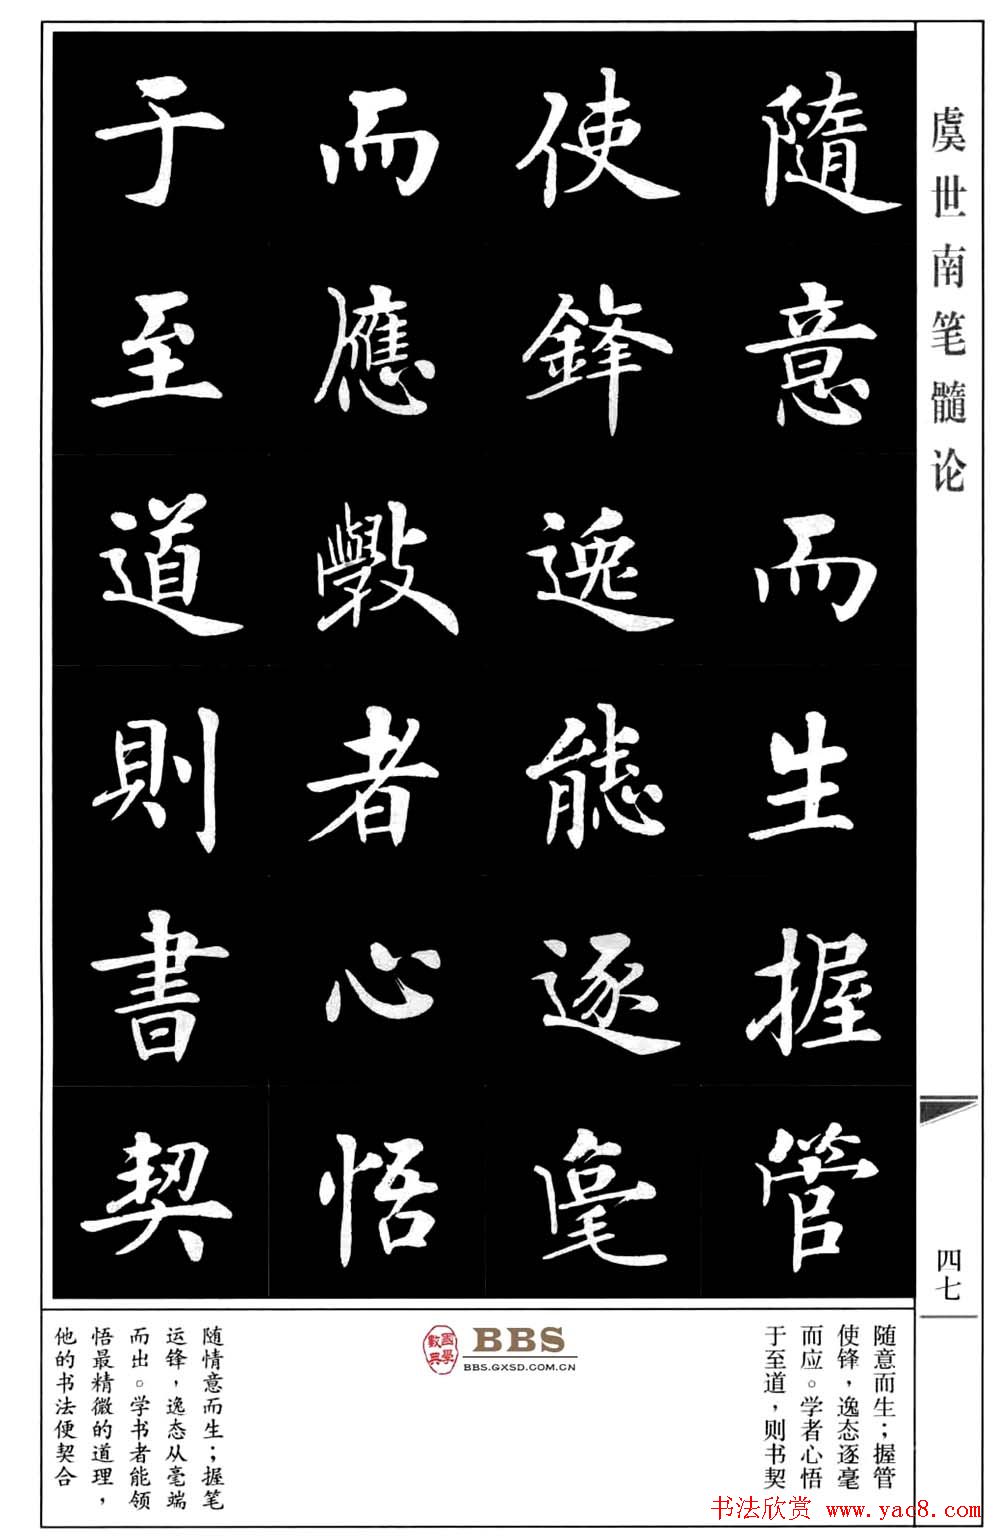 虞世南笔髓论
随意而生握管
使鋒逸態逐毫
而應斅者心悟
于至道則書契
四七
随意而生；握管
使锋，逸态逐毫
而应。学者心悟
于至道，则书契
國學數典
BBS
BBS.GXSD.COM.CN
随情意而生；握笔
运锋，逸态从毫端
而出。学书者能领
悟最精微的道理，
他的书法便契合
书法欣赏 www.yac8.com